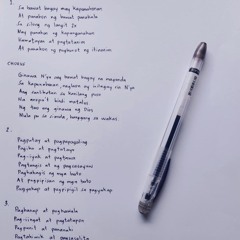 1.
Sa bawat bagay may kapanahunan
At panahon ng bawat panukala
Sa silong ng langit ia
May panahon ng kapanganakan
Kamatayan at pagtatanim
At panahon ng pagbunot ng itinanim
CHORUS
Ginawa N'ya ang bawat bagay na maganda
Sa kapanahunan, naglaan ng inilagay rin N'ya
Ang sanlibutan sa kanilang puso
Na anupa't hindi matalos
Ng tao ang ginawa ng Dios
Mula pa sa simula, hanggang sa wakas.
2.
Pagpatay at pagpapagaling
Paggiba at pagtatayo
Pag-iyak at pagtawa
Pagtangis at ng pagsasayaw
Paghahagis ng mga bato
At pagpipisan ng mga bato
Pagyakap at pagpipigil sa pagyakap
3.
Paghanap at pagkawala
Pag-iingat at pagtatapon
Pagpunit at pananahi
Pagtahimik at pagsasalita